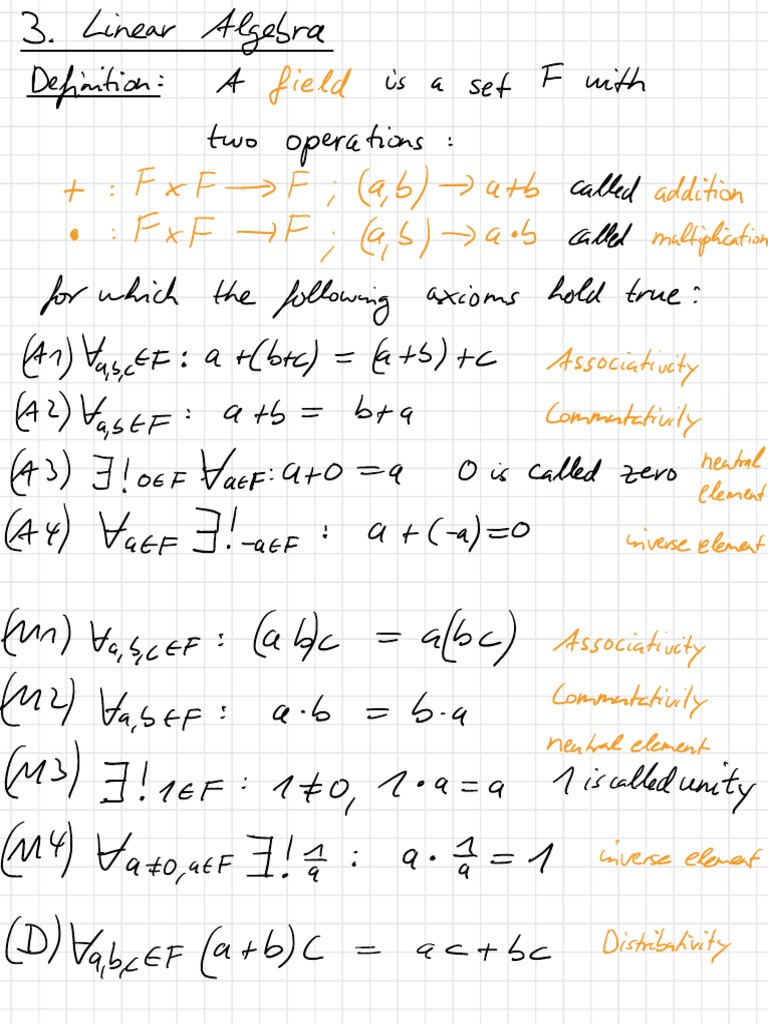 3. Linear Algebra
Definition: A field is a set F with
two operations:
+ : F × F → F ; (a,b) → a+b called addition
• : F × F → F ; (a,b) → a•b called multiplication
for which the following axioms hold true:
(A1) ∀a,b,c∈F: a+(b+c) = (a+b)+c Associativity
(A2) ∀a,b∈F: a+b = b+a Commutativity
(A3) ∃!0∈F ∀a∈F: a+0 = a 0 is called zero neutral element
(A4) ∀a∈F ∃!-a∈F : a+(-a)=0 inverse element
(M1) ∀a,b,c∈F : (ab)c = a(bc) Associativity
(M2) ∀a,b∈F : a·b = b·a Commutativity
neutral element
(M3) ∃!1∈F : 1≠0, 1·a = a 1 is called unity
(M4) ∀a≠0,a∈F ∃!1/a : a·1/a = 1 inverse element
(D) ∀a,b,c∈F (a+b)c = ac+bc Distributivity